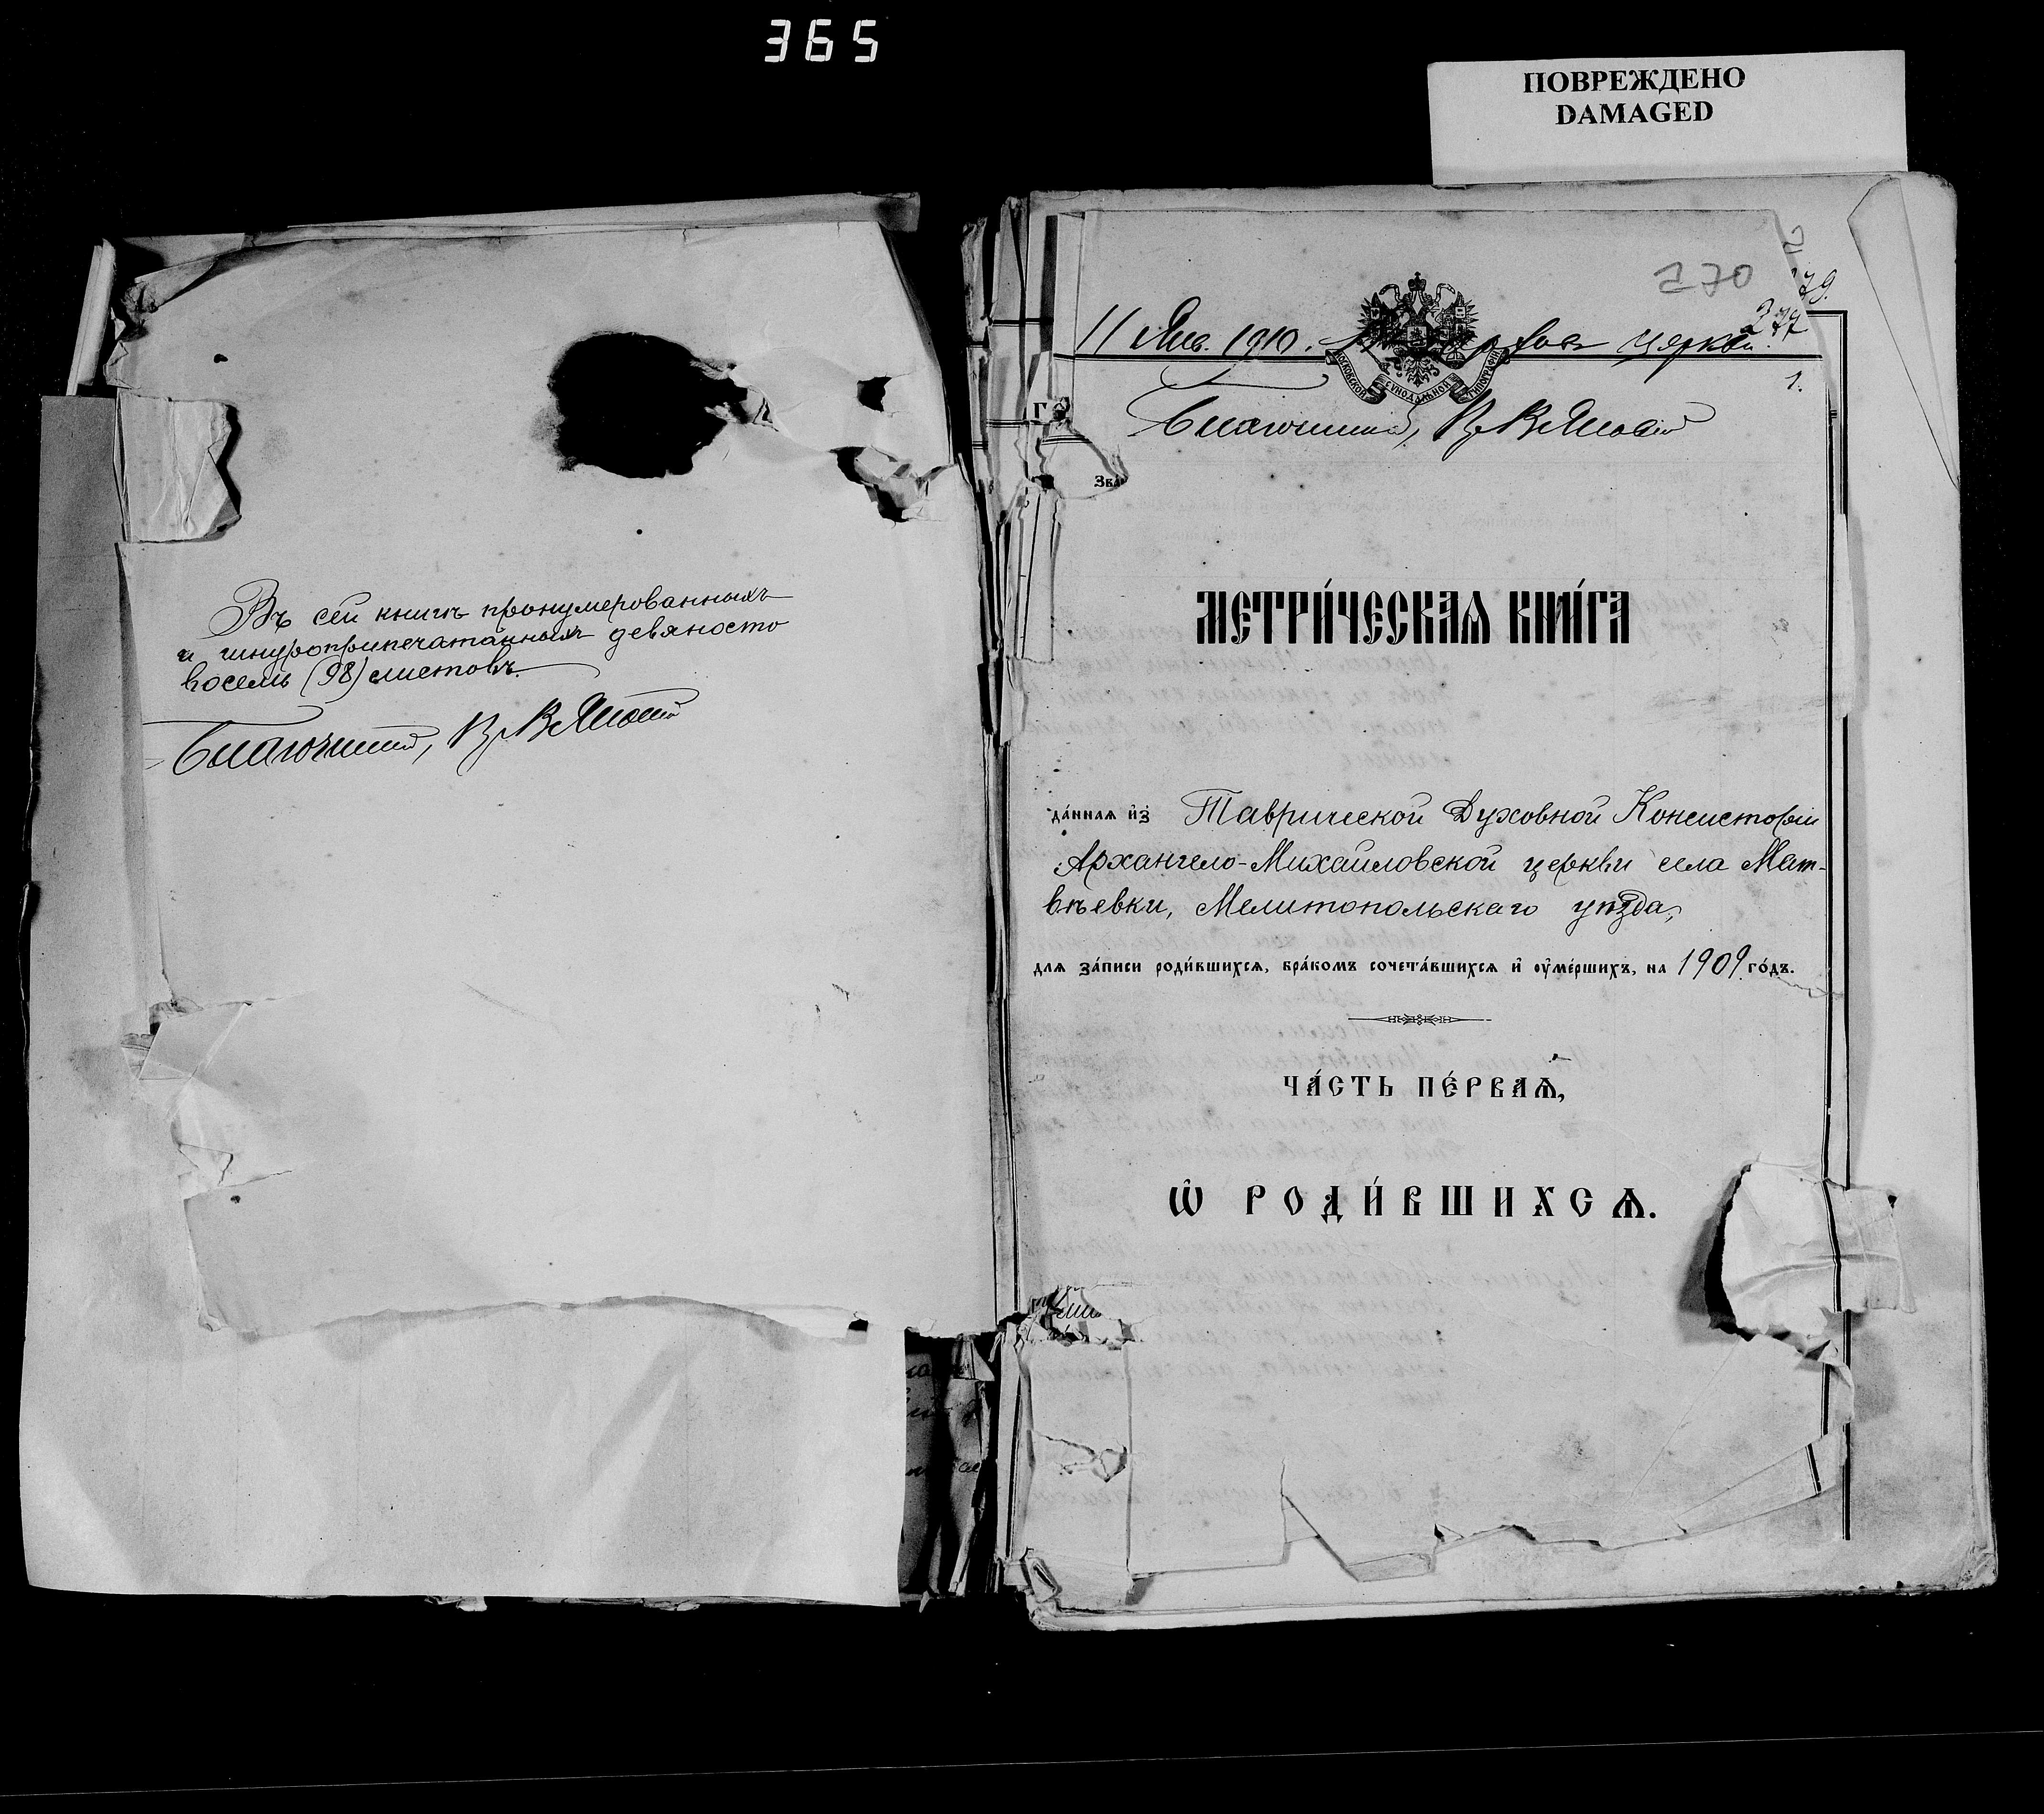 365
ПОВРЕЖДЕНО
DAMAGED
Въ сей книгѣ пронумерованныхъ
и шнуроприпечатанныхъ девяносто
восемь (98) листовъ.
Благочинный,
270
79.
277
11 Янв. 1910. церкви.
МОСКОВСКОЙ СУНОДАЛЬНОЙ ТИПОГРАФІИ
1.
Благочинный,
Г
Зва
МЕТРИ́ЧЕСКАѦ КНИ́ГА
да́ннаѧ и҆з̾ Таврической Духовной Консисторіи
Архангело-Михайловской церкви села Мат-
вѣевки, Мелитопольскаго уѣзда,
для за́писи роди́вшихсѧ, бра́комъ сочета́вшихсѧ и҆ оу҆ме́ршихъ, на 1909 го́дъ.
ЧА́СТЬ ПЕ́РВАѦ,
Ѡ҆ РОДИ́ВШИХСѦ.